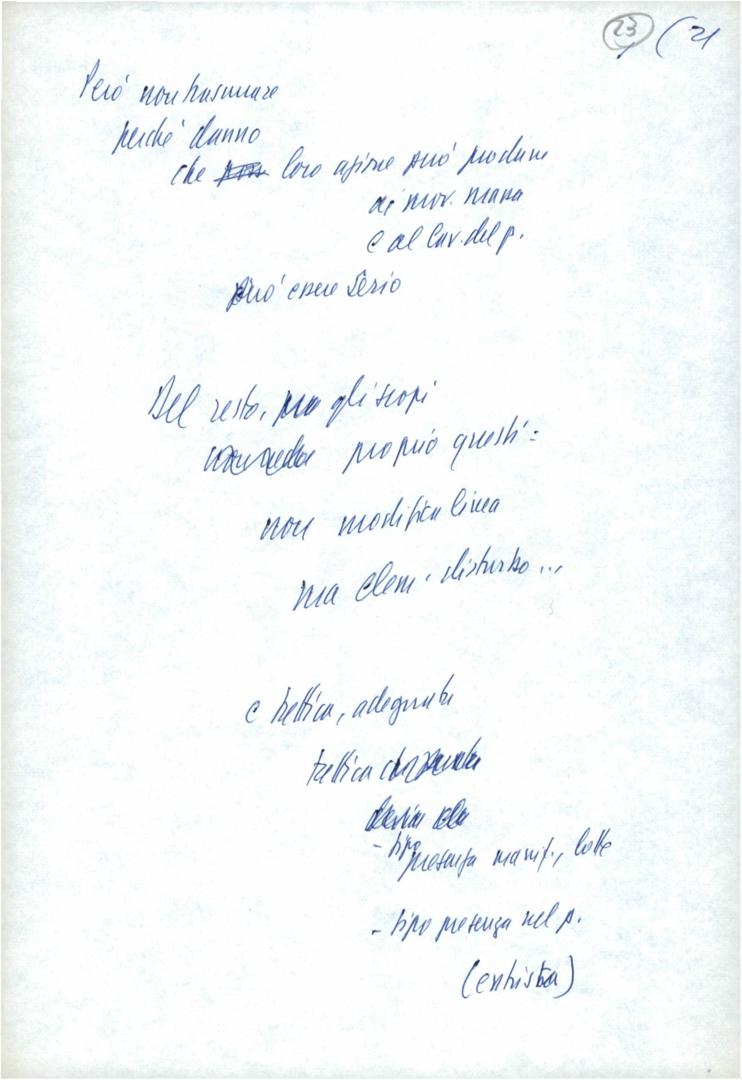 23 (21
Però non trascurare
perché danno
che loro azione può produrre
ai mov. massa
e al lav. del p.
può essere serio
Del resto, gli scopi
proprio questi:
non modifica linea
ma elem. disturbo...
e tattica, adeguata
tattica
- tipo presenza manif., lotte
- tipo presenza nel p.
(entrista)